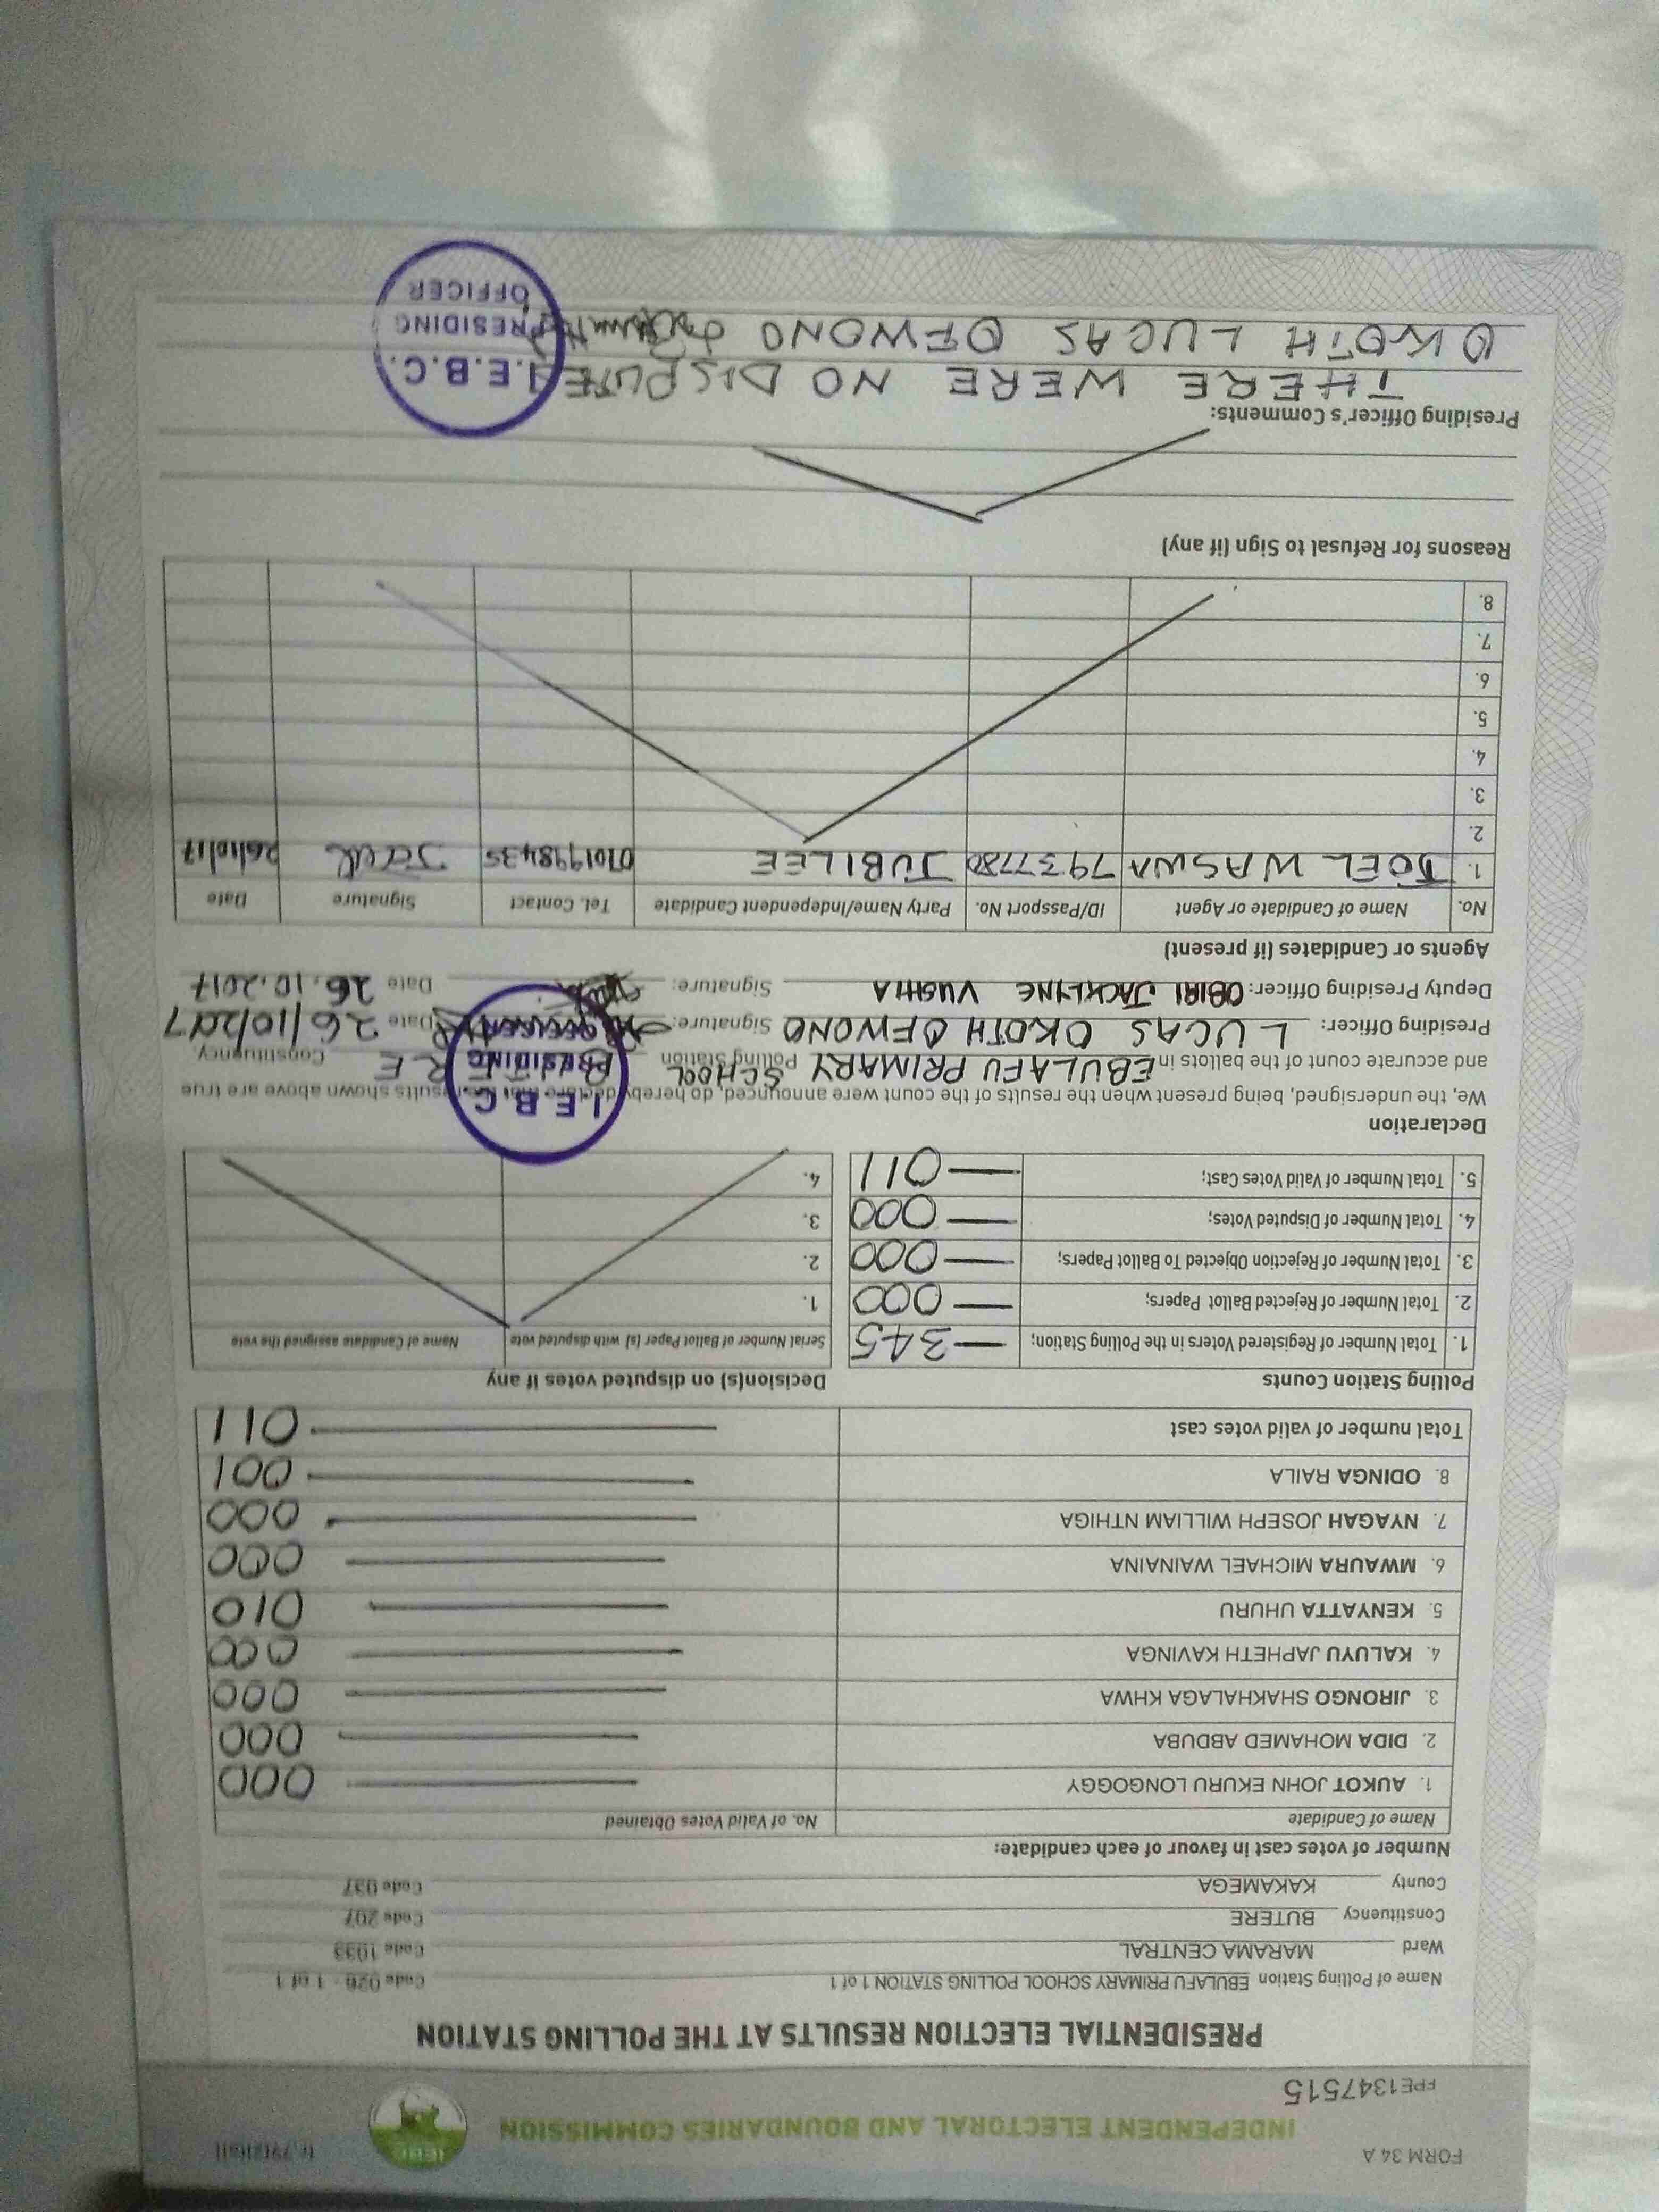 FORM 34 A
INDEPENDENT ELECTORAL AND BOUNDARIES COMMISSION
IEBC
FPE1347515
PRESIDENTIAL ELECTION RESULTS AT THE POLLING STATION
Name of Polling Station EBULAFU PRIMARY SCHOOL POLLING STATION 1 of 1 Code 026 - 1 of 1
Ward MARAMA CENTRAL Code 1033
Constituency BUTERE Code 207
County KAKAMEGA Code 037
Number of votes cast in favour of each candidate:
Name of Candidate No. of Valid Votes Obtained
1. AUKOT JOHN EKURU LONGOGGY 000
2. DIDA MOHAMED ABDUBA 000
3. JIRONGO SHAKHALAGA KHWA 000
4. KALUYU JAPHETH KAVINGA 000
5. KENYATTA UHURU 010
6. MWAURA MICHAEL WAINAINA 000
7. NYAGAH JOSEPH WILLIAM NTHIGA 000
8. ODINGA RAILA 001
Total number of valid votes cast 011
Polling Station Counts Decision(s) on disputed votes if any
1. Total Number of Registered Voters in the Polling Station; 345 Serial Number of Ballot Paper (s) with disputed vote Name of Candidate assigned the vote
2. Total Number of Rejected Ballot Papers; 000 1.
3. Total Number of Rejection Objected To Ballot Papers; 000 2.
4. Total Number of Disputed Votes; 000 3.
5. Total Number of Valid Votes Cast; 011 4.
Declaration
We, the undersigned, being present when the results of the count were announced, do hereby declare that the results shown above are true
and accurate count of the ballots in EBULAFU PRIMARY SCHOOL Polling Station BUTERE Constituency.
Presiding Officer: LUCAS OKOTH OFWONO Signature: Date 26/10/2017
Deputy Presiding Officer: OBIRI JACKLINE VUGHIA Signature: Date 26.10.2017
I.E.B.C
PRESIDING
OFFICER
Agents or Candidates (if present)
No. Name of Candidate or Agent ID/Passport No. Party Name/Independent Candidate Tel. Contact Signature Date
1. JOEL WASWA 7937780 JUBILEE 0701998435 26/10/17
2.
3.
4.
5.
6.
7.
8.
Reasons for Refusal to Sign (if any)
Presiding Officer's Comments:
THERE WERE NO DISPUTE
OKOTH LUCAS OFWONO
I.E.B.C.
PRESIDING
OFFICER